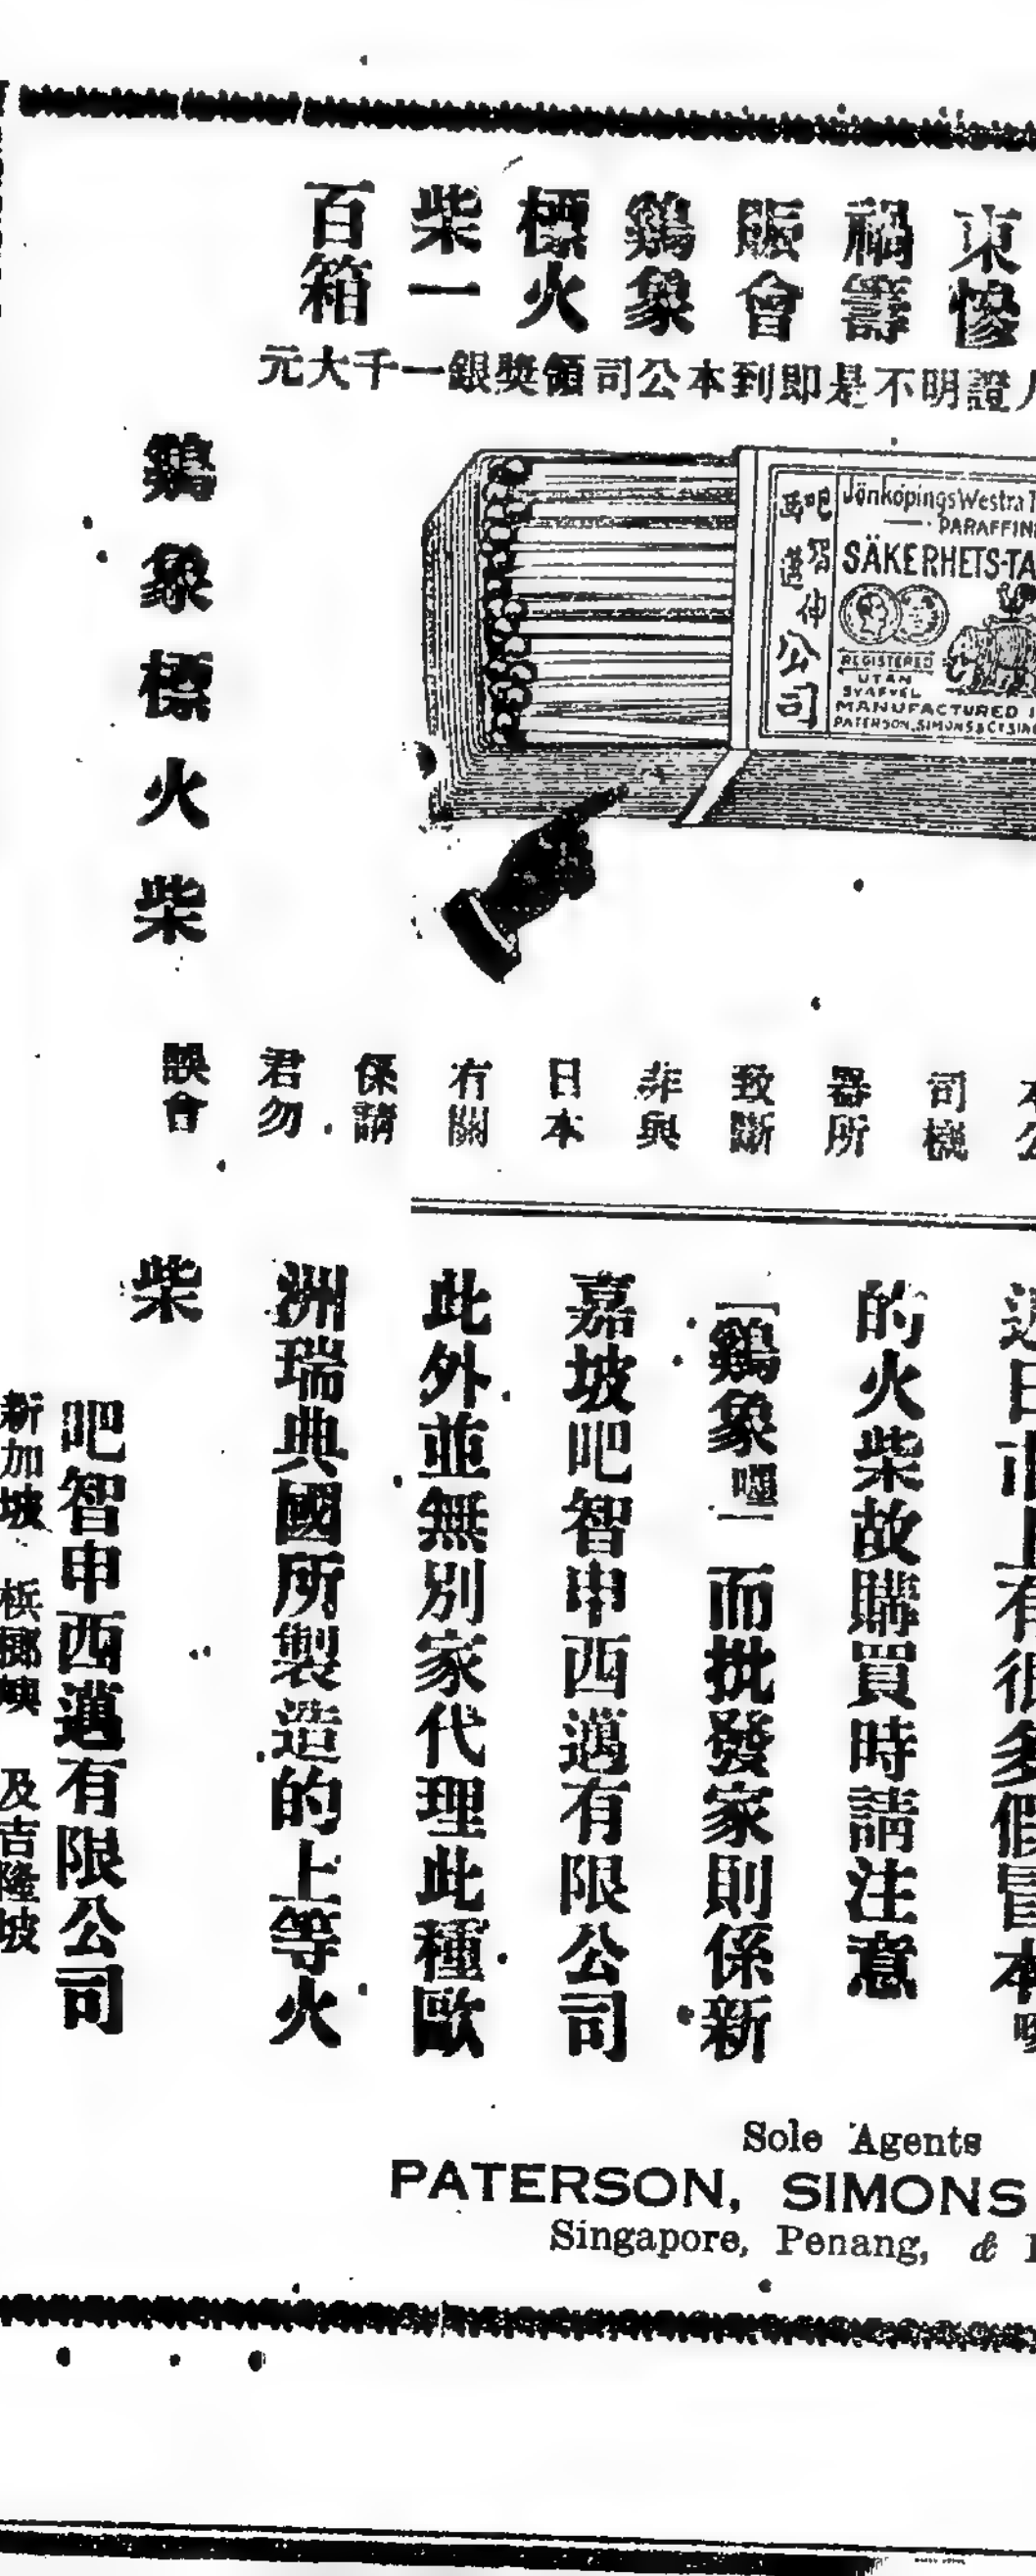 東慘
禍籌
賑會
鷄象
標火
柴一
百箱
證明不是即到本公司領獎銀一千大元
Jönköpings Westra
PARAFFIN
SÄKERHETS-TA
REGISTERED
UTAN
SVAFVEL
MANUFACTURED
PATERSON, SIMONS & Cº SING
公司
鷄象標火柴
司機
器所
致斷
非與
日本
有關
係請
君勿
誤會
的火柴故購買時請注意
「鷄象嘜」而批發家則係新
嘉坡吧智申西邁有限公司
此外並無別家代理此種歐
洲瑞典國所製造的上等火
柴
吧智申西邁有限公司
新加坡 梹榔嶼 及吉隆坡
Sole Agents
PATERSON, SIMONS
Singapore, Penang, &